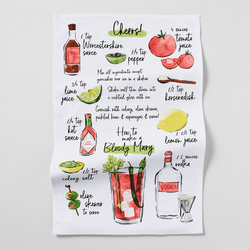 Cheers!
1 tsp
Worcestershire
sauce
1/4 tsp
pepper
4 ounces
tomato
juice
Mix all ingredients except
garnishes over ice in a shaker.
1/2 tsp
lime
juice
Shake well then strain into
a cocktail glass with ice.
1/2 tsp
horseradish
Garnish with celery, olive skewer,
pickled beans & asparagus & serve!
1/4 tsp
hot
sauce
How to
make a
Bloody Mary
1/2 tsp
lemon juice
1/2 tsp
celery salt
2 ounces
vodka
VODKA
olive
skewer
to serve